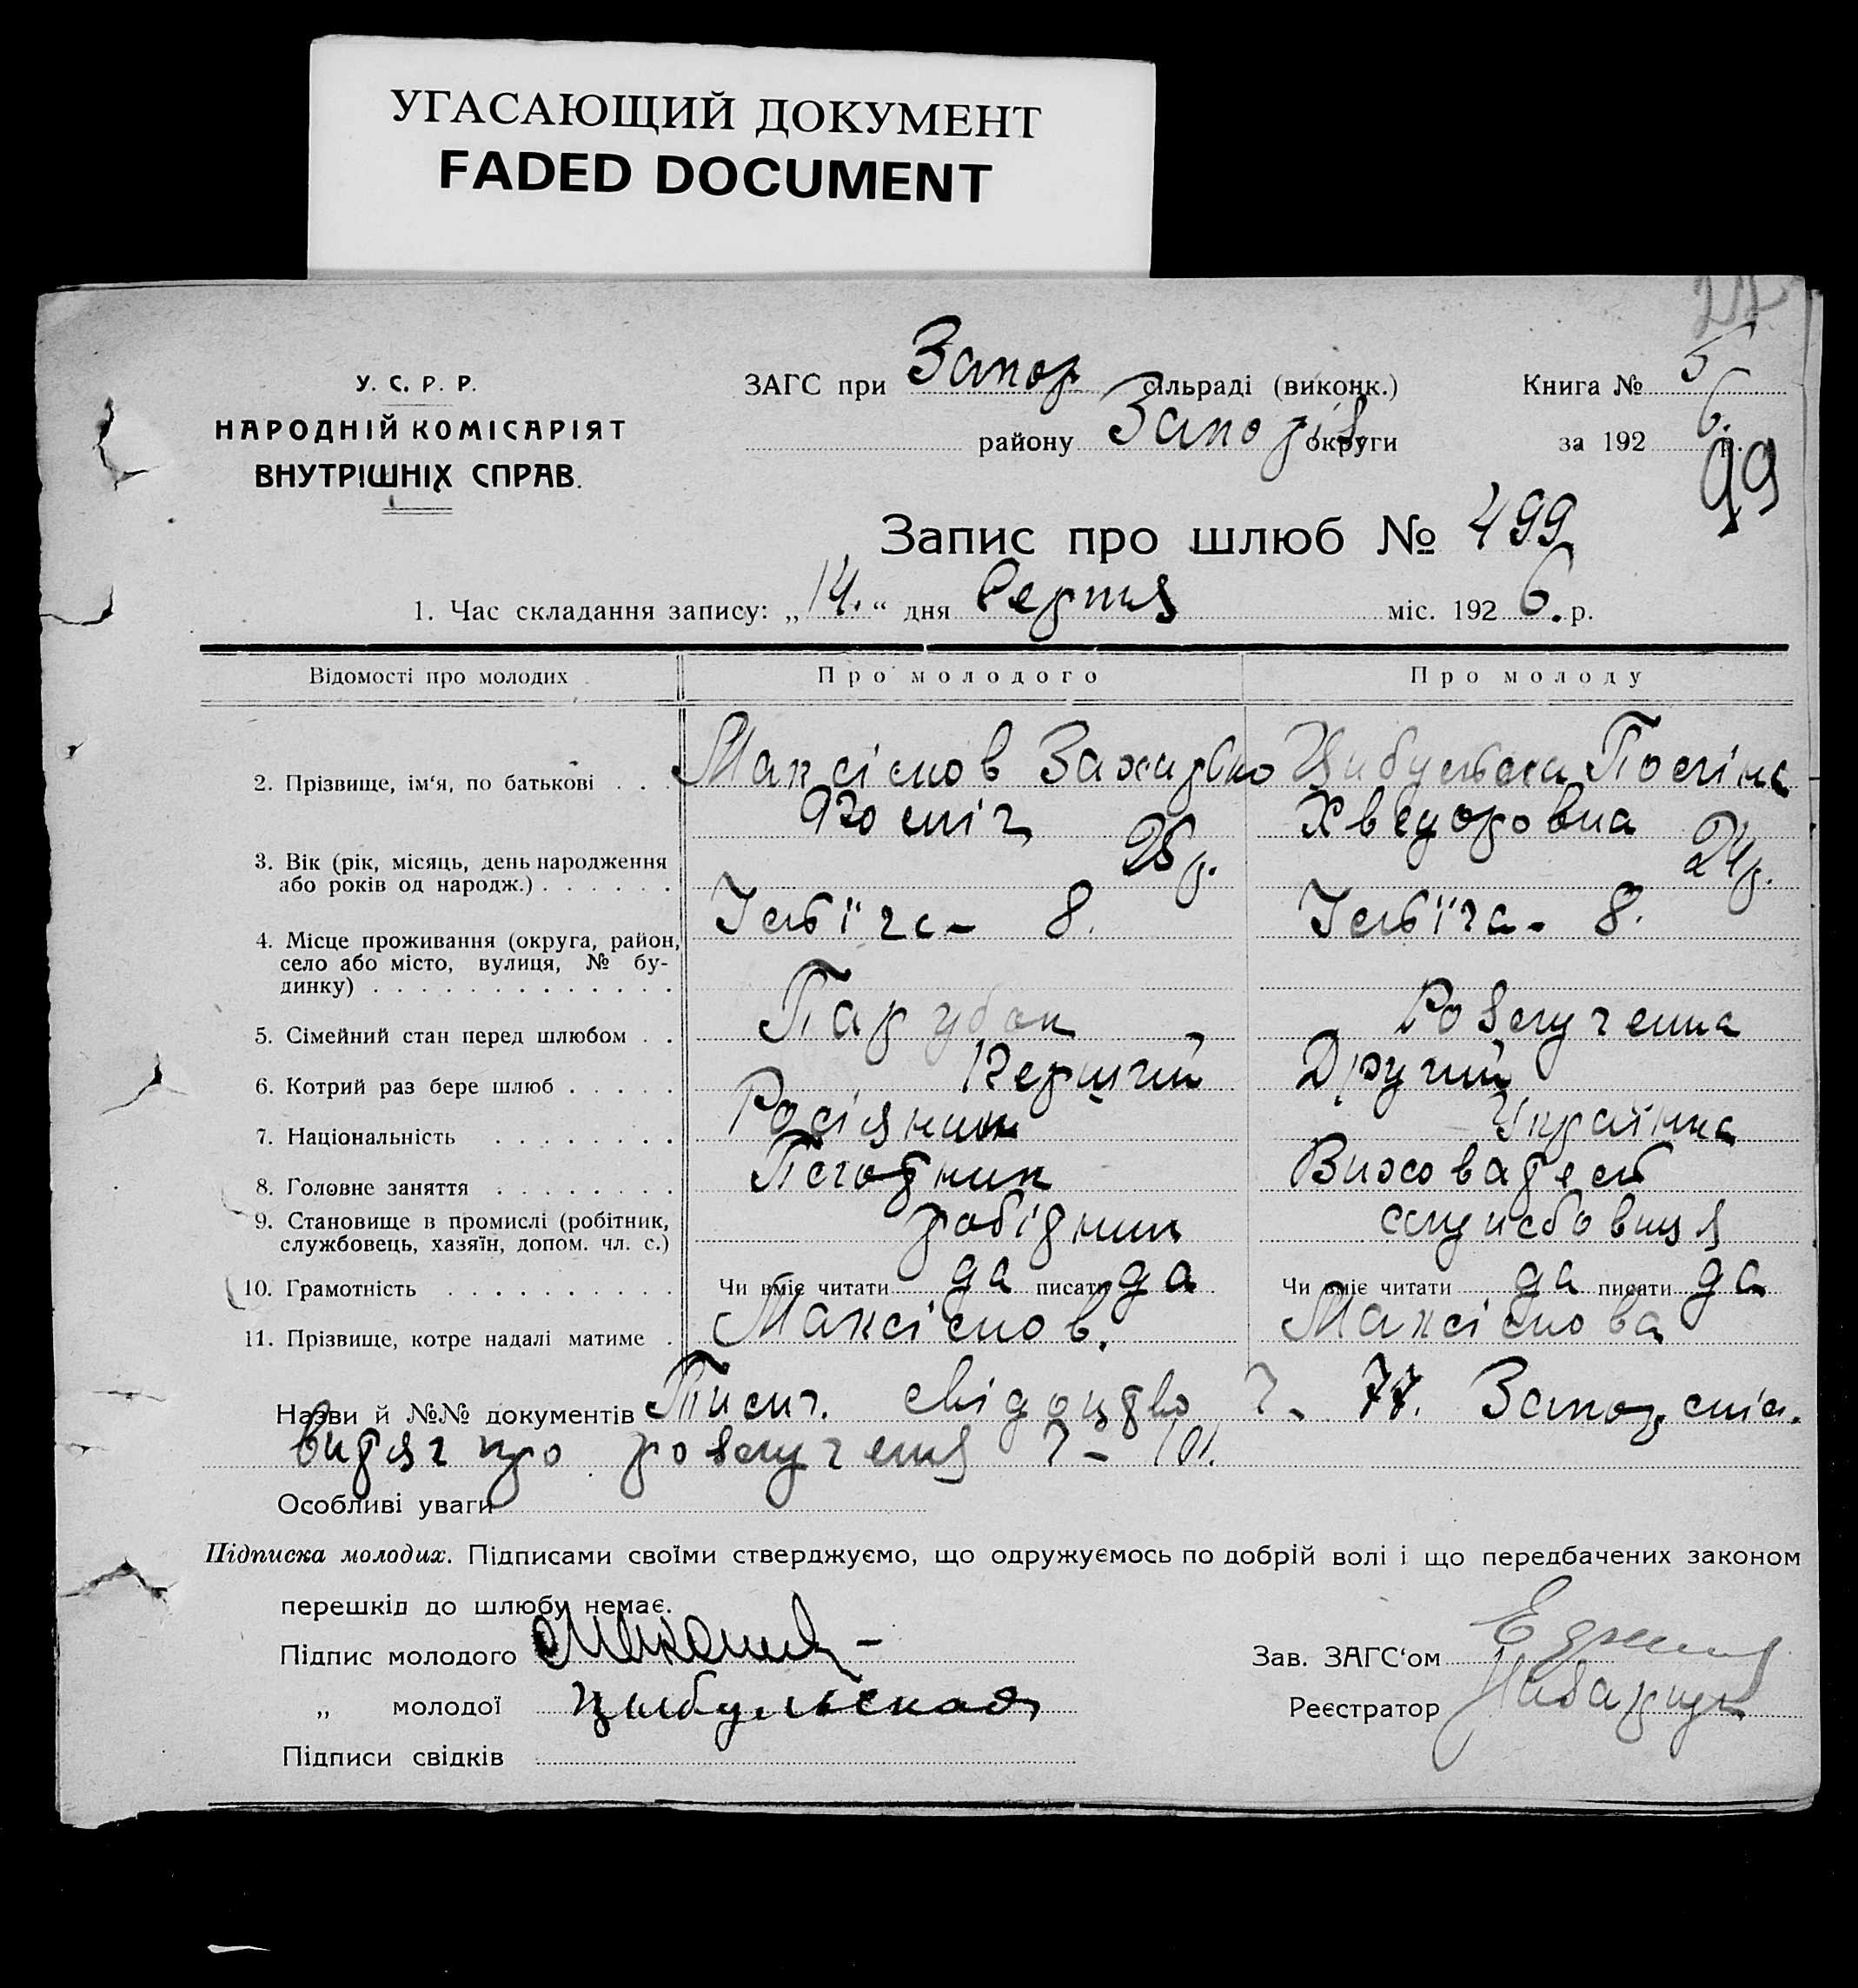 УГАСАЮЩИЙ ДОКУМЕНТ
FADED DOCUMENT
У. С. Р. Р.
НАРОДНІЙ КОМІСАРІЯТ
ВНУТРІШНІХ СПРАВ.
ЗАГС при Запор сільраді (виконк.) Книга № 5
району Запоріз округи за 1926 р.
99
Запис про шлюб № 499
1. Час складання запису: „14.“ дня Серпня міс. 1926. р.
Відомості про молодих Про молодого Про молоду
2. Прізвище, ім‘я, по батькові . . . Максімов Цибульська
Хведоровна
3. Вік (рік, місяць, день народження або років од народж.) . . . . . . 24р.
4. Місце проживання (округа, район, село або місто, вулиця, № будинку) . . . . . . . . . . . . . Ілліча - 8. Ілліча - 8.
5. Сімейний стан перед шлюбом . . Парубок Розлученна
6. Котрий раз бере шлюб . . . . . Перший Другий
7. Національність . . . . . . . . Росіянин Українка
8. Головне заняття . . . . . . . .
9. Становище в промислі (робітник, службовець, хазяїн, допом. чл. с.) робітник службовиця
10. Грамотність . . . . . . . . . . Чи вміє читати да писати да Чи вміє читати да писати да
11. Прізвище, котре надалі матиме . Максімов. Максімова
Назви й №№ документів свідоцтво ч. 77.
Витяг про розлучення ч - 101.
Особливі уваги
Підписка молодих. Підписами своїми стверджуємо, що одружуємось по добрій волі і що передбачених законом
перешкід до шлюбу немає.
Підпис молодого Зав. ЗАГС‘ом
„ молодої Цыбульская Реєстратор
Підписи свідків